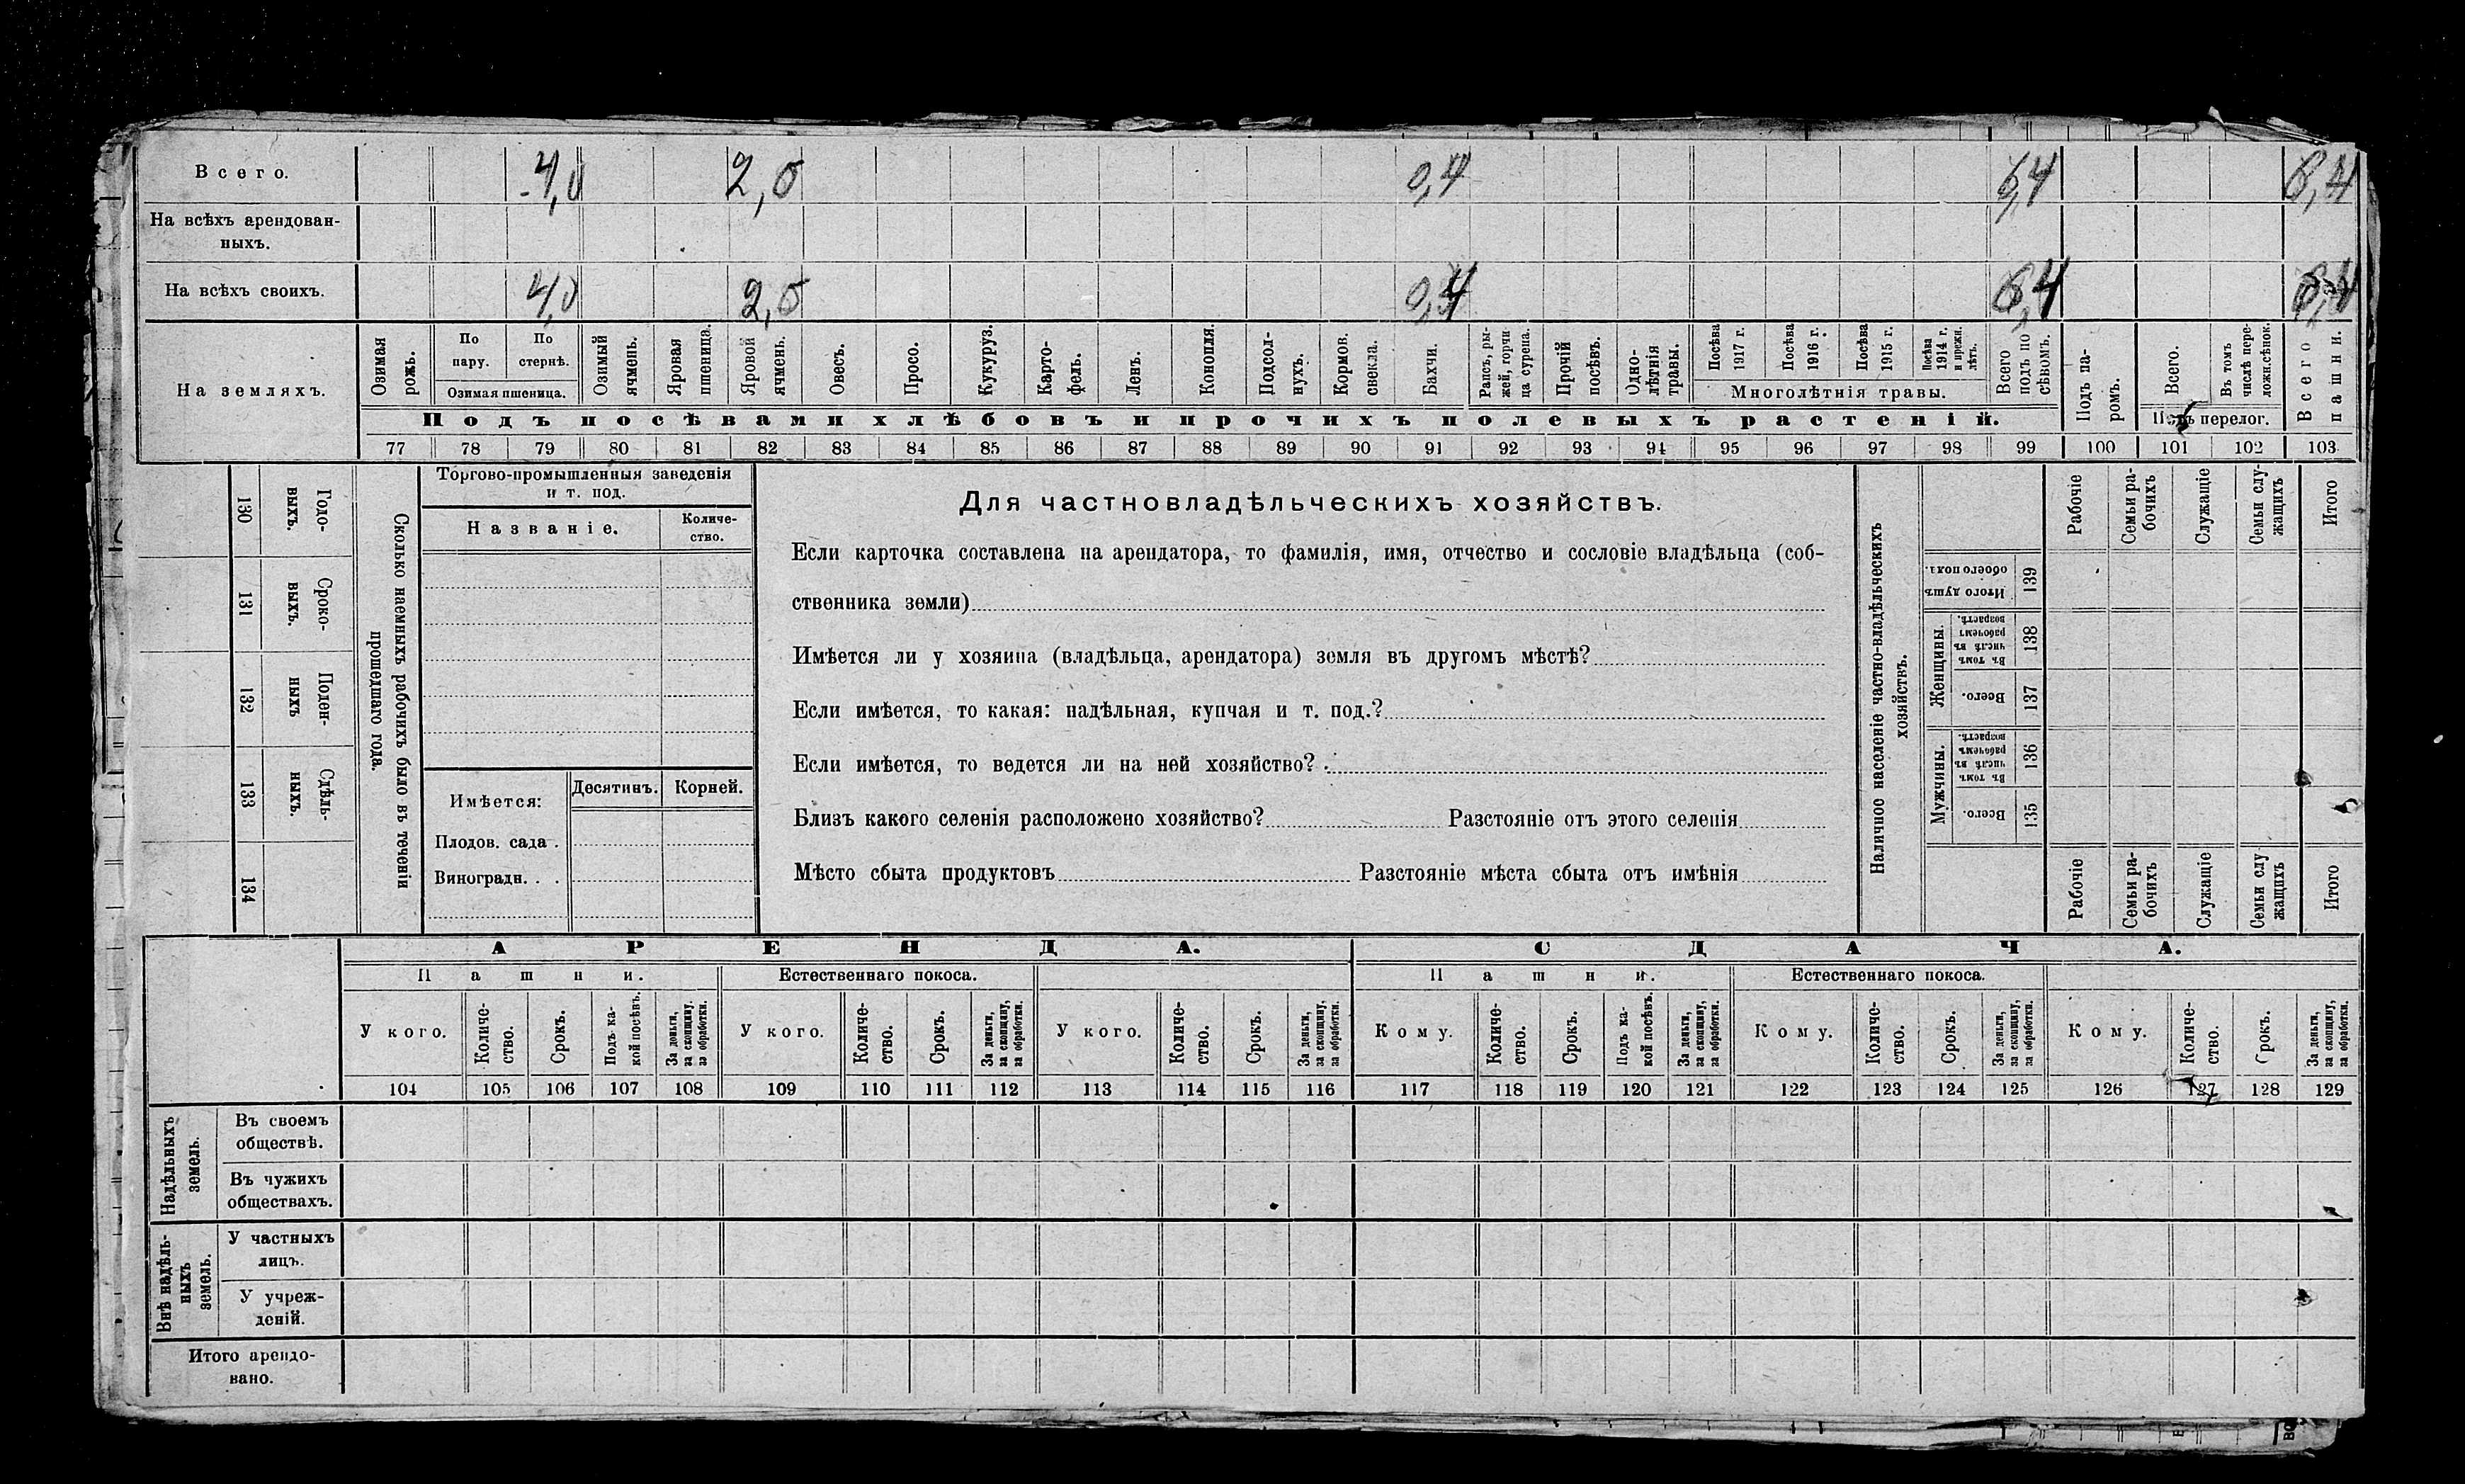 Всего. 4,0 2,0 0,4 6,4 6,4
На всѣхъ арендован-
ныхъ.
На всѣхъ своихъ. 4,0 2,0 0,4 6,4 6,4
На земляхъ.
Озимая рожь.
По пару.
По стернѣ.
Озимая пшеница.
Озимый ячмень.
Яровая пшеница.
Яровой ячмень.
Овесъ.
Просо.
Кукуруз.
Карто-
фель.
Ленъ.
Конопля.
Подсол-
нухъ.
Кормов. свекла.
Бахчи.
Рапсъ, ры-
жей, горчи
ца сурепа.
Прочій посѣвъ.
Одно-
лѣтнія травы.
Посѣва 1917 г.
Посѣва 1916 г.
Посѣва 1915 г.
Посѣва 1914 г. и прежн. лѣтъ.
Многолѣтнія травы.
Всего подъ по
сѣвомъ.
Подъ па-
ромъ.
Всего.
Въ томъ числѣ пере-
ложн.сѣнок.
Подъ перелог.
Всего пашни.
Подъ посѣвами хлѣбовъ и прочихъ полевыхъ растеній.
77 78 79 80 81 82 83 84 85 86 87 88 89 90 91 92 93 94 95 96 97 98 99 100 101 102 103
130 Годо-
выхъ.
131 Сроко-
выхъ.
132 Поден-
ныхъ
133 Сдѣль-
ныхъ.
134
Сколько наемныхъ рабочихъ было въ теченіи
прошедшаго года.
Торгово-промышленныя заведенія
и т. под.
Названіе.
Количе-
ство.
Имѣется:
Десятинъ. Корней.
Плодов. сада.
Виноградн. . .
Для частновладѣльческихъ хозяйствъ.
Если карточка составлена на арендатора, то фамилія, имя, отчество и сословіе владѣльца (соб-
ственника земли)
Имѣется ли у хозяина (владѣльца, арендатора) земля въ другомъ мѣстѣ?
Если имѣется, то какая: надѣльная, купчая и т. под.?
Если имѣется, то ведется ли на ней хозяйство?
Близъ какого селенія расположено хозяйство? Разстояніе отъ этого селенія
Мѣсто сбыта продуктовъ Разстояніе мѣста сбыта отъ имѣнія
Наличное населеніе частно-владѣльческихъ
хозяйствъ.
Рабочіе
Семьи ра-
бочихъ
Служащіе
Семьи слу-
жащихъ
Итого
Итого душъ обоего пола. 139
Женщины.
Въ томъ числѣ въ рабочемъ возрастѣ. 138
Всего. 137
Мужчины.
Въ томъ числѣ въ рабочемъ возрастѣ. 136
Всего. 135
Рабочіе
Семьи ра-
бочихъ
Служащіе
Семьи слу
жащихъ
Итого
АРЕНДА. СДАЧА.
Пашни. Естественнаго покоса. Пашни. Естественнаго покоса.
У кого.
Количе-
ство.
Срокъ.
Подъ ка-
кой посѣвъ.
За деньги, за скопщину, за обработки.
У кого.
Количе-
ство.
Срокъ.
За деньги, за скопщину, за обработки.
У кого.
Количе-
ство.
Срокъ.
За деньги, за скопщину, за обработки.
Кому.
Количе-
ство.
Срокъ.
Подъ ка-
кой посѣвъ.
За деньги, за скопщину, за обработки.
Кому.
Количе-
ство.
Срокъ.
За деньги, за скопщину, за обработки.
Кому.
Количе-
ство.
Срокъ.
За деньги, за скопщину, за обработки.
104 105 106 107 108 109 110 111 112 113 114 115 116 117 118 119 120 121 122 123 124 125 126 127 128 129
Надѣльныхъ
земель.
Въ своемъ
обществѣ.
Въ чужихъ
обществахъ.
Внѣ надѣль-
ныхъ
земель.
У частныхъ
лицъ.
У учреж-
деній.
Итого арендо-
вано.